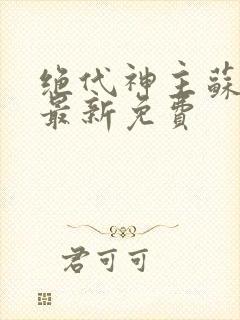 绝代神主蘇
最新免費
君可可